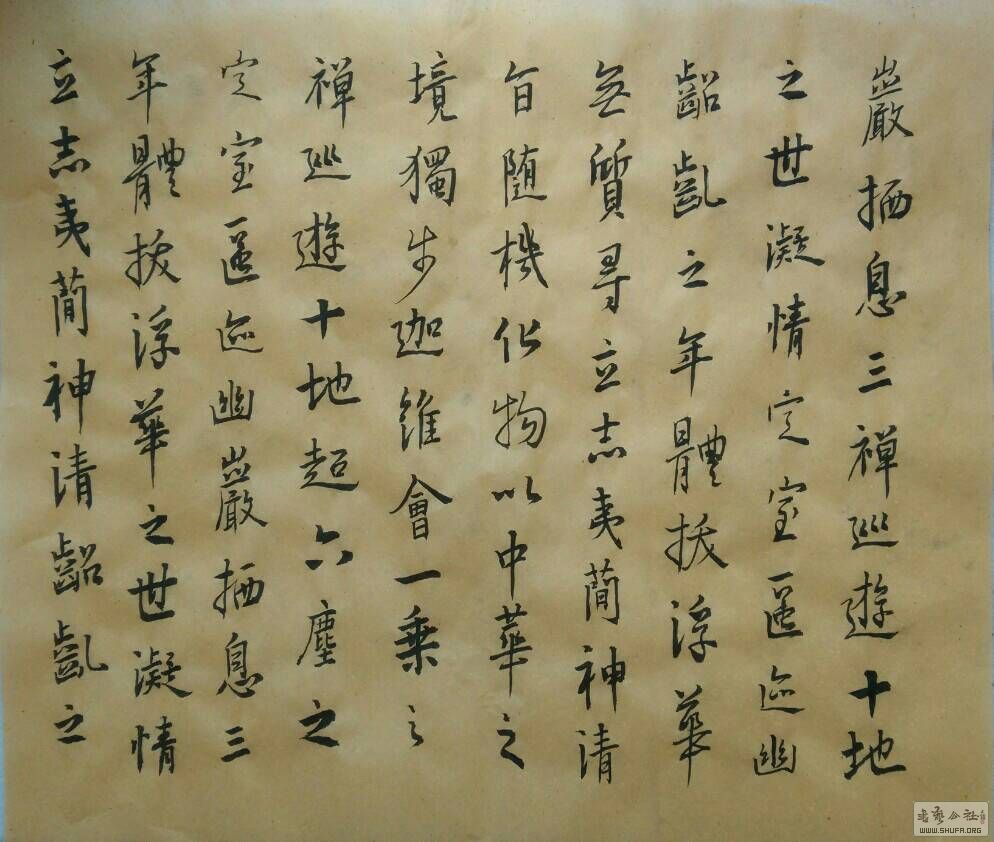 巖栖息三禪巡遊十地
之世凝情定室匿迹幽
齠齔之年體拔浮華
無質尋立志夷簡神清
旨随機化物以中華之
境獨步迦維會一乗之
禅巡遊十地超六塵之
定室匿迹幽巖栖息三
年體拔浮華之世凝情
立志夷蕳神清齠齔之
WWW.SHUFA.ORG